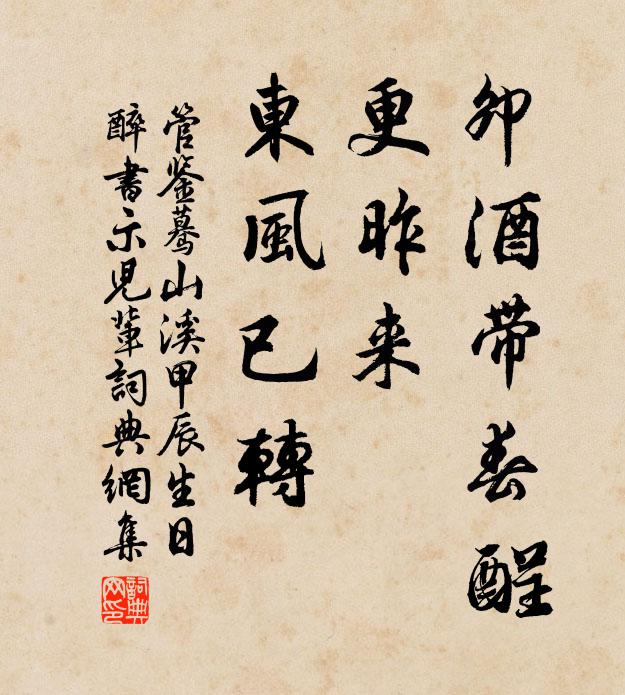 卯酒帶春酲
更昨来
東風已轉
管鉴蓦山溪甲辰生日
醉書示児輩詞典網集
詞典网印